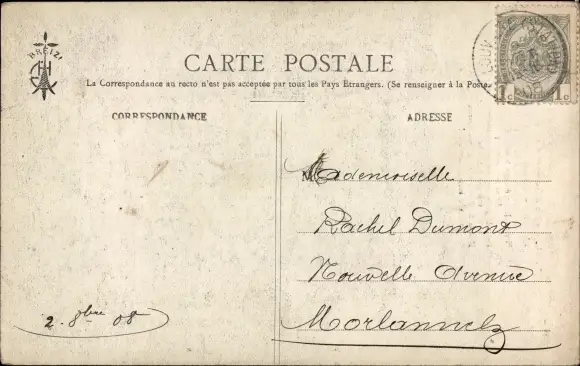 BREIZ
CARTE POSTALE
La Correspondance au recto n'est pas acceptée par tous les Pays Etrangers. (Se renseigner à la Poste.
CORRESPONDANCE
ADRESSE
Mademoiselle
Rachel Dumont
Nouvelle Avenue
Morlanwelz
2. 8bre 08
1c 1c